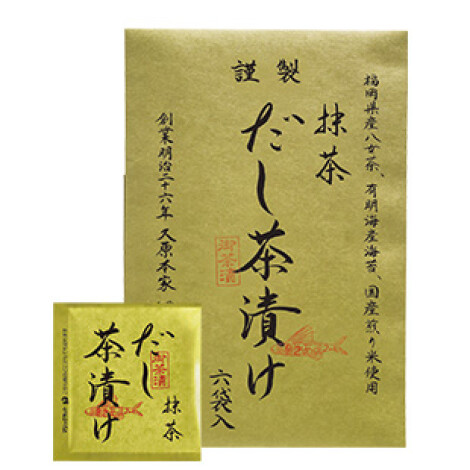 謹製
福岡県産八女茶、有明海産海苔、国産煎り米使用
抹茶
だし茶漬け
御茶漬
六袋入
創業明治二十六年 久原本家
抹茶
だし
茶漬け
御茶漬